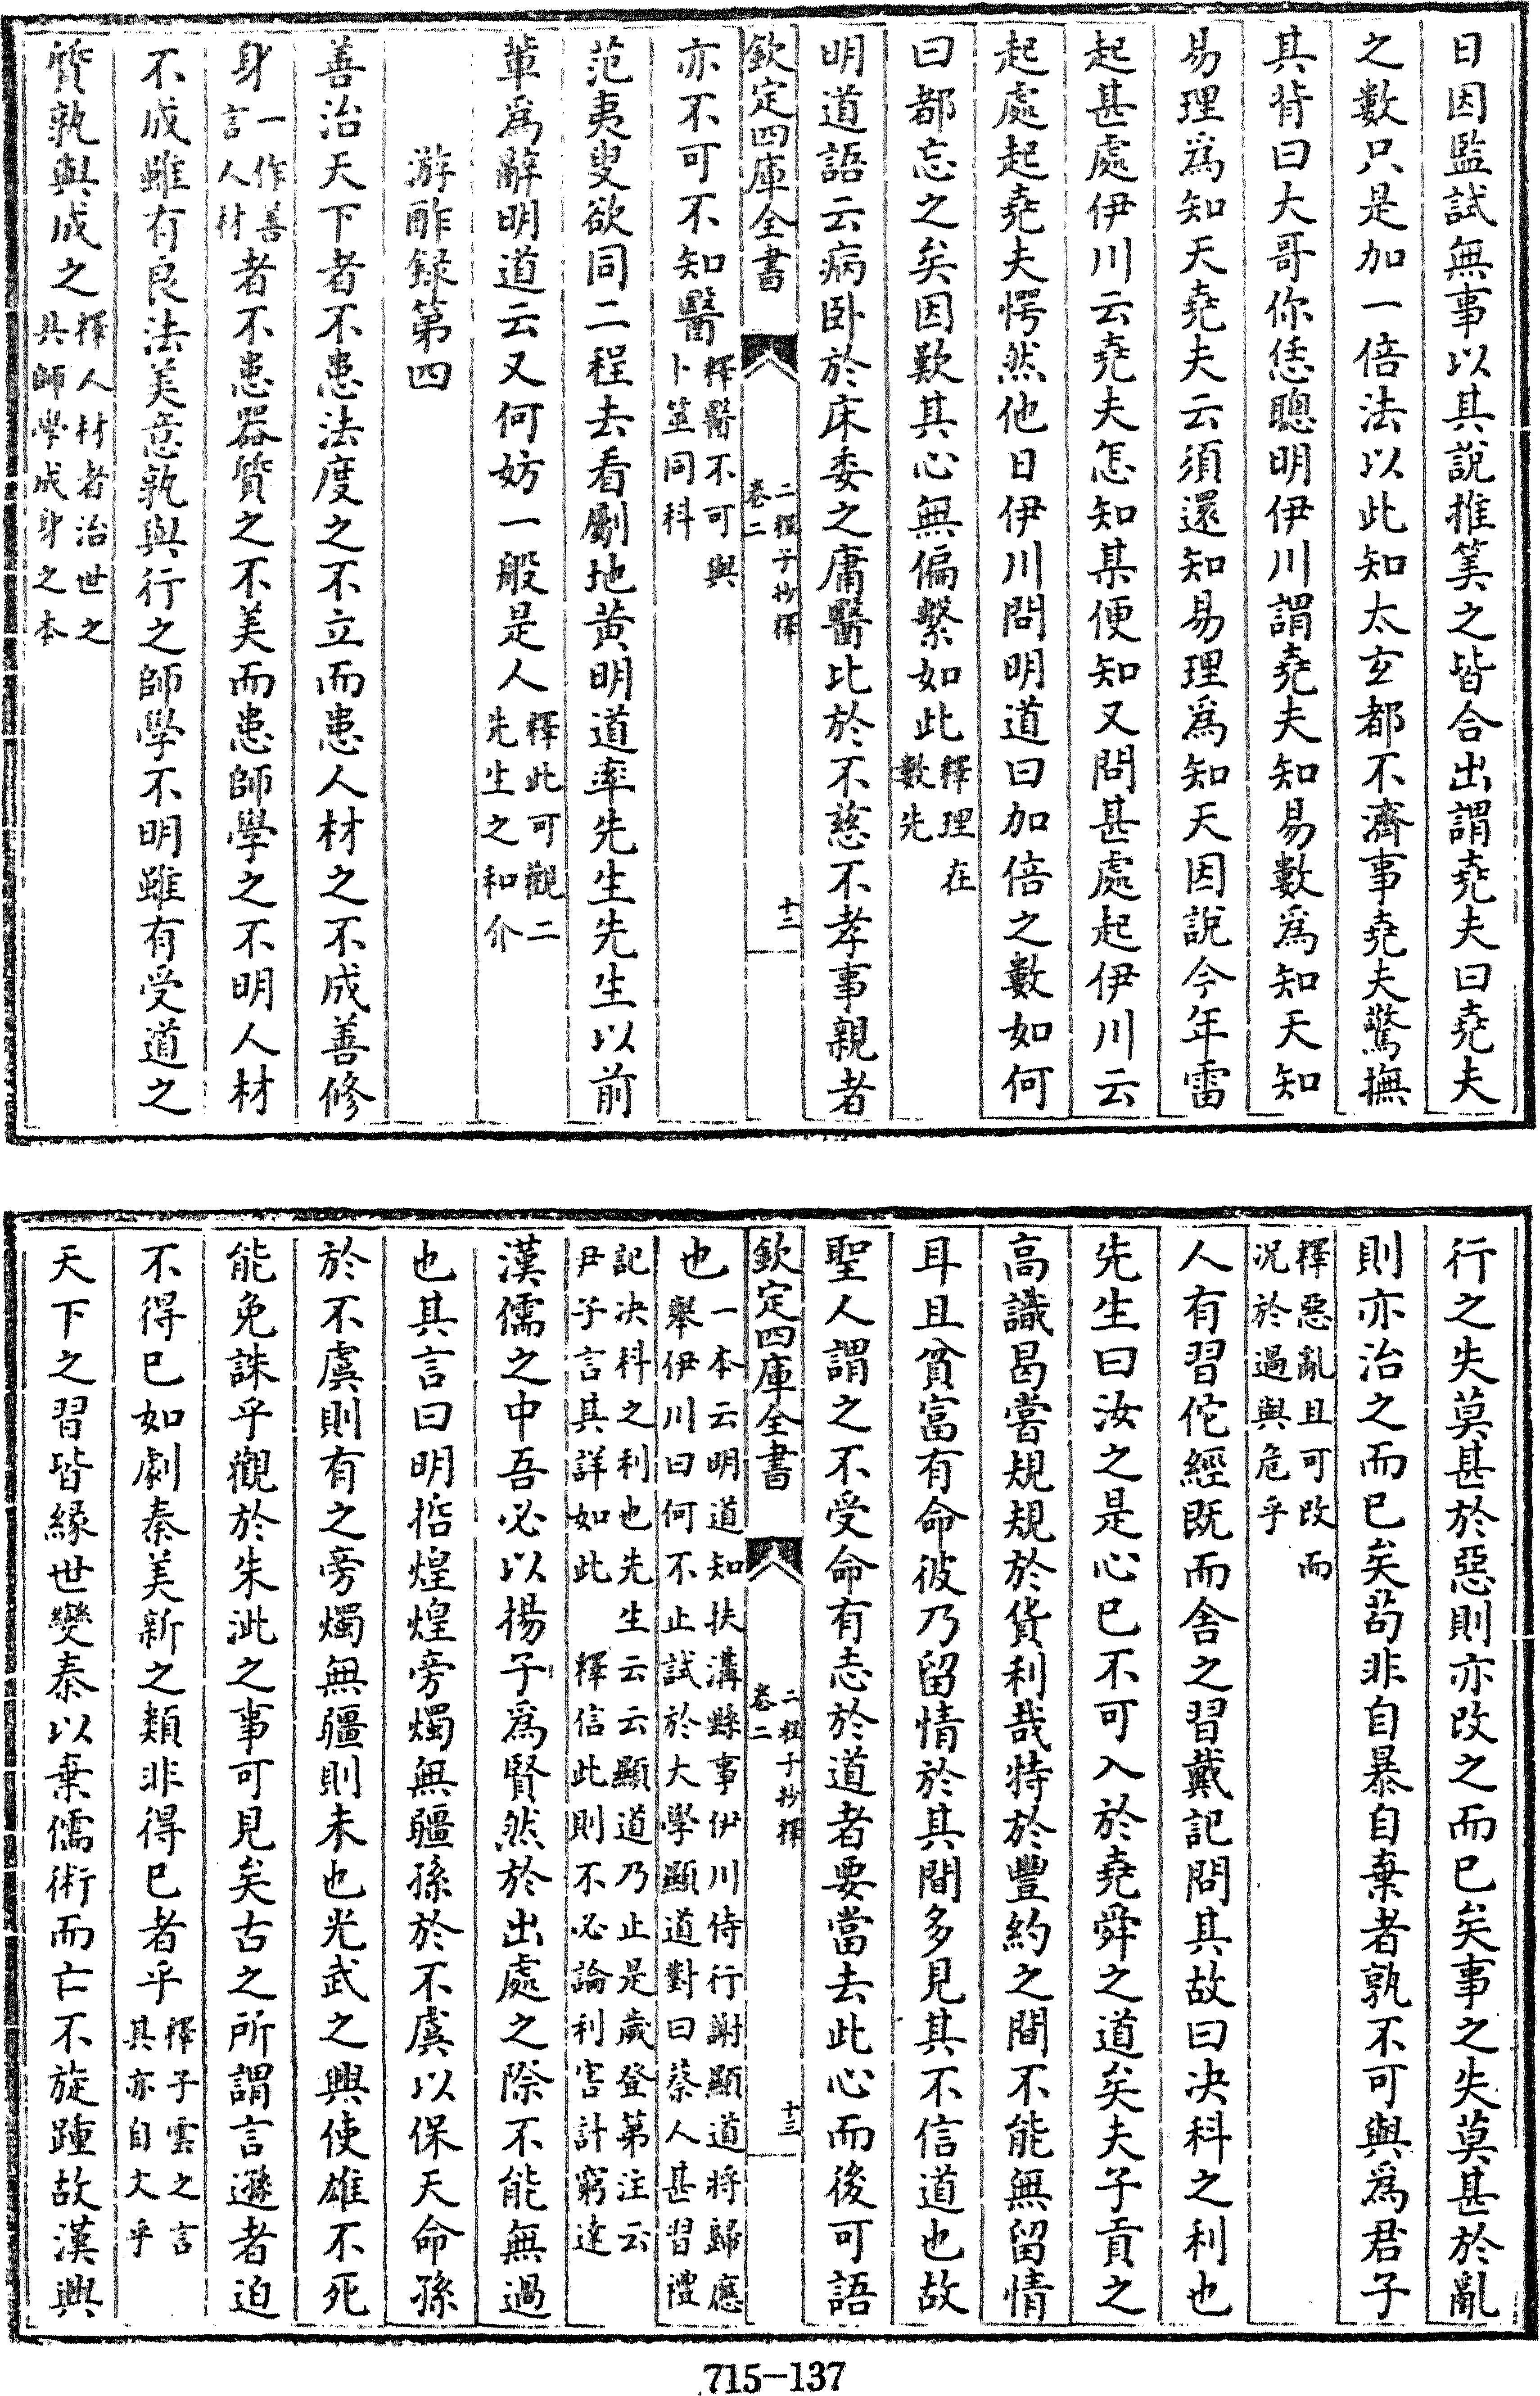 日因監試無事以其說推筭之皆合出謂堯夫曰堯夫
之數只是加一倍法以此知太玄都不濟事堯夫驚撫
其背曰大哥你恁聰明伊川謂堯夫知易數爲知天知
易理爲知天堯夫云須還知易理爲知天因說今年雷
起甚處伊川云堯夫怎知某便知又問甚處起伊川云
起處起堯夫愕然他日伊川問明道曰加倍之數如何
曰都忘之矣因歎其心無偏繫如此釋理在
數先
明道語云病卧於床委之庸醫比於不慈不孝事親者
欽定四庫全書
二程子抄釋
卷二
十二
亦不可不知醫釋醫不可與
卜筮同科
范夷叟欲同二程去看劚地黃明道率先生先生以前
輩爲辭明道云又何妨一般是人釋此可觀二
先生之和介
游酢録第四
善治天下者不患法度之不立而患人材之不成善修
身一作善
言人材者不患器質之不美而患師學之不明人材
不成雖有良法美意孰與行之師學不明雖有受道之
質孰與成之釋人材者治世之
具師學成身之本
行之失莫甚於惡則亦改之而已矣事之失莫甚於亂
則亦治之而已矣茍非自暴自棄者孰不可與爲君子
釋惡亂且可改而
况於過與危乎
人有習佗經既而舍之習戴記問其故曰决科之利也
先生曰汝之是心已不可入於堯舜之道矣夫子貢之
高識曷嘗規規於貨利哉特於豐約之間不能無留情
耳且貧富有命彼乃留情於其間多見其不信道也故
聖人謂之不受命有志於道者要當去此心而後可語
欽定四庫全書
二程子抄釋
卷二
十三
也一本云明道知扶溝縣事伊川侍行謝顯道將歸應
舉伊川曰何不止試於大學顯道對曰蔡人甚習禮
記决科之利也先生云云顯道乃止是歲登第注云
尹子言其詳如此 釋信此則不必論利害計窮達
漢儒之中吾必以楊子爲賢然於出處之際不能無過
也其言曰明哲煌煌旁燭無疆孫於不虞以保天命孫
於不虞則有之旁燭無疆則未也光武之興使雄不死
能免誅乎觀於朱泚之事可見矣古之所謂言遜者迫
不得已如劇秦美新之類非得已者乎釋子雲之言
其亦自文乎
天下之習皆緣世變秦以棄儒術而亡不旋踵故漢興
715-137